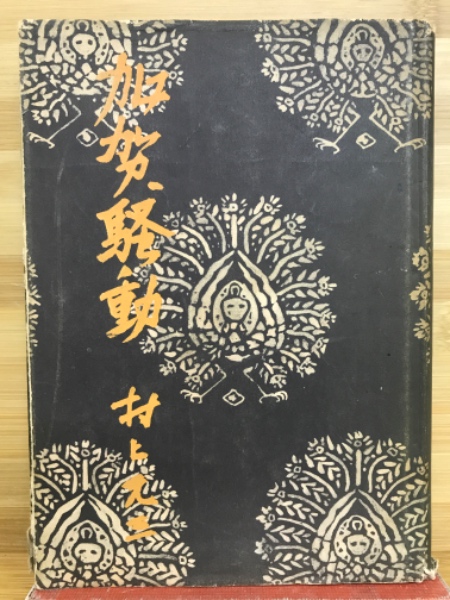 加賀騒動
村上元三